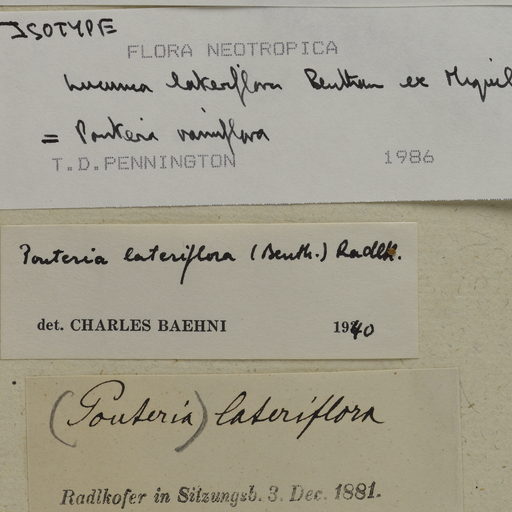 ISOTYPE
FLORA NEOTROPICA
Lucuma lateriflora Bentham ex Miquel
= Pouteria ramiflora
T.D.PENNINGTON 1986
Pouteria lateriflora (Benth.) Radlk.
det. CHARLES BAEHNI 1940
(Pouteria) lateriflora
Radlkofer in Sitzungsb. 3. Dec. 1881.